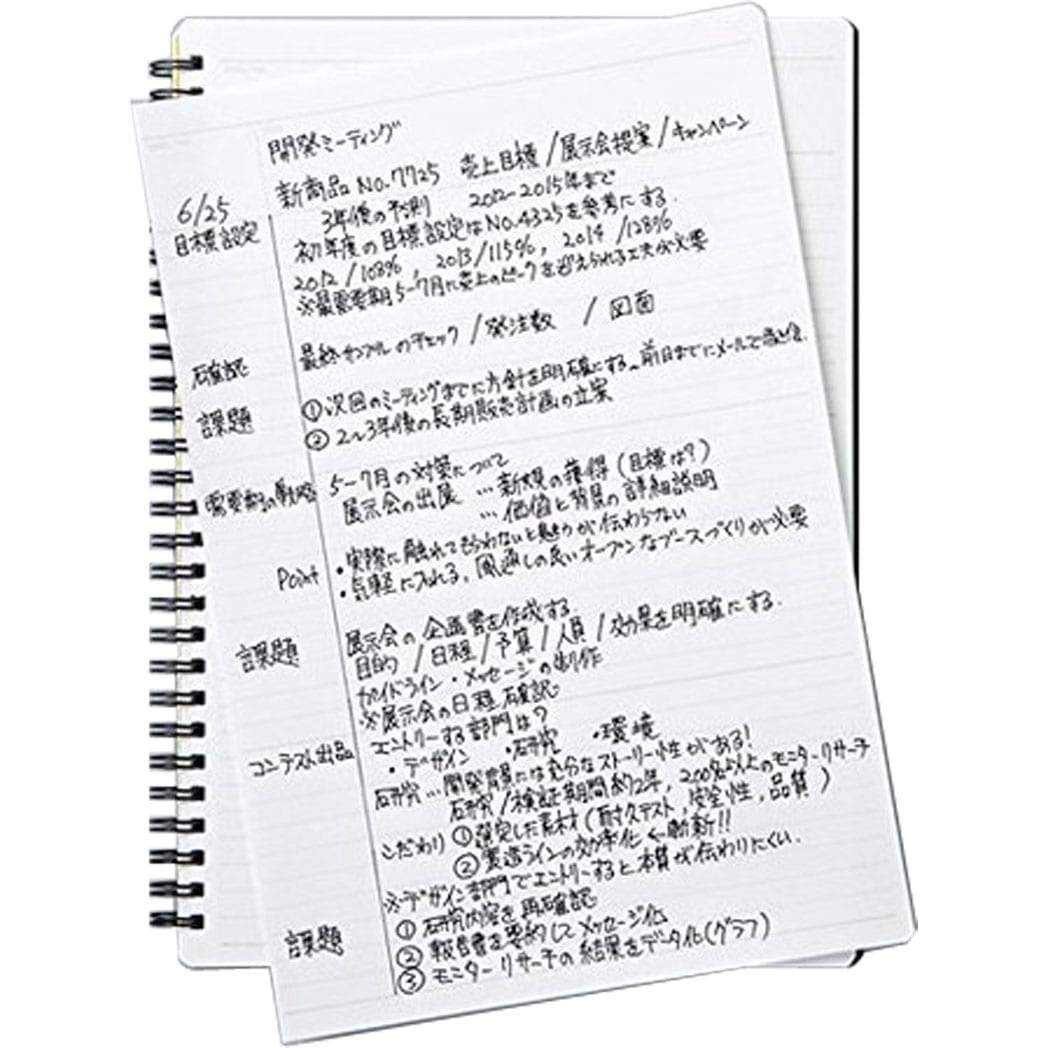 開発ミーティング
新商品 No.7725 売上目標 / 展示会提案 / キャンペーン
6/25 3年後の予測 2012-2015年まで
目標設定 初年度の目標設定はNo.4325を参考にする.
2012/108%, 2013/115%, 2014/128%
※最需要期5-7月に売上のピークを迎えられる工夫が必要
確認 最終サンプルのチェック / 発注数 / 図面
課題 ① 次回のミーティングまでに方針を明確にする。前日までにメールで
② 2~3年後の長期販売計画の立案
需要期の戦略 5-7月の対策について
展示会の出展 … 新規の獲得(目標は?)
… 価値と背景の詳細説明
Point ・実際に触れてもらわないと魅力が伝わらない
・気軽に入れる, 風通しの良いオープンなブースづくりが必要
課題 展示会の企画書を作成する.
目的 / 日程 / 予算 / 人員 / 効果を明確にする.
ガイドライン・メッセージの制作
※展示会の日程確認
コンテスト出品 エントリーする部門は?
・デザイン ・研究 ・環境
研究 … 開発背景には充分なストーリー性がある!
研究/検証期間約2年, 200名以上のモニターリサーチ
こだわり ① 選定した素材(耐久テスト, 安全性, 品質)
② 製造ラインの効率化 ← 斬新!!
※デザイン部門でエントリーすると本質が伝わりにくい.
課題 ① 研究内容を再確認
② 報告書を要約してメッセージ化
③ モニターリサーチの結果をデータ化(グラフ)